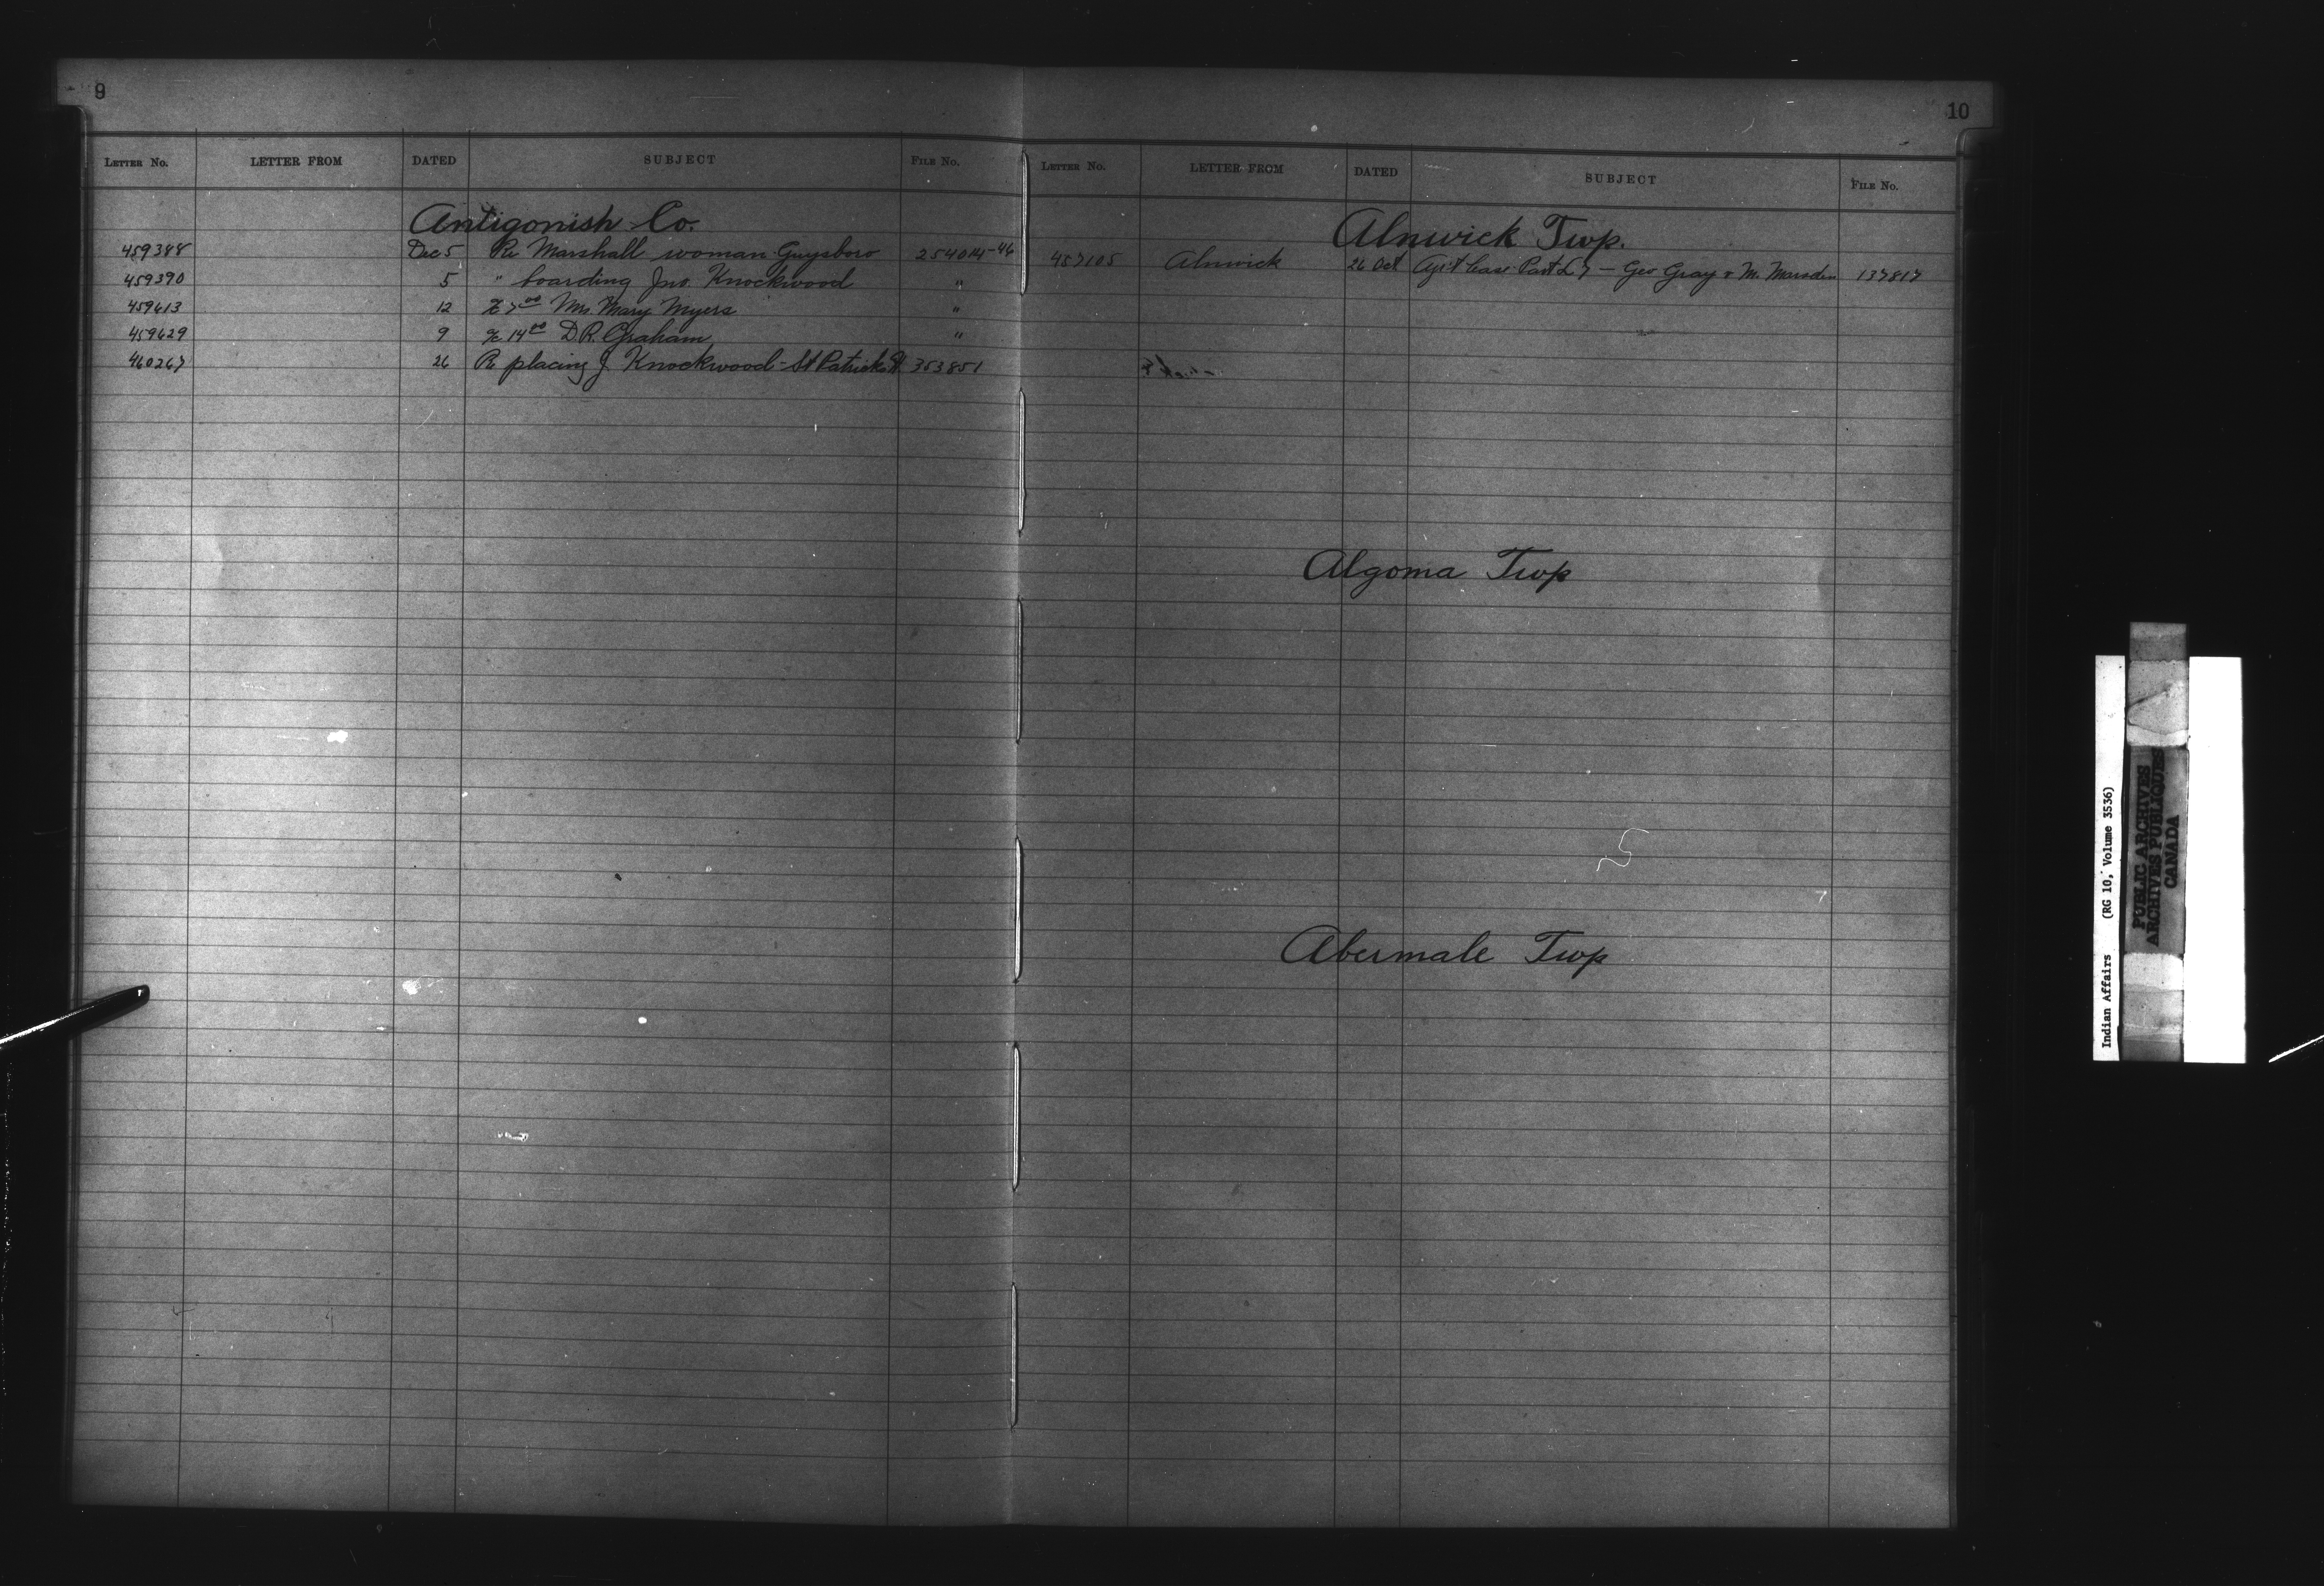 9
LETTER No. LETTER FROM DATED SUBJECT FILE No.
Antigonish Co.
459388 Dec 5 Re Marshall woman Guysboro 254014-46
459390 5 " boarding Jno. Knockwood "
459613 12 7 00 Mrs Mary Myers "
459629 9 14 00 D.R. Graham "
460267 26 Re placing J Knockwood - St Patricks 353851
10
LETTER No. LETTER FROM DATED SUBJECT FILE No.
Alnwick Twp.
457105 Alnwick 26 Oct Part L 7 - Geo Gray & M. Marsden 137817
Algoma Twp
Abermale Twp
Indian Affairs (RG 10, Volume 3536)
PUBLIC ARCHIVES
ARCHIVES PUBLIQUES
CANADA